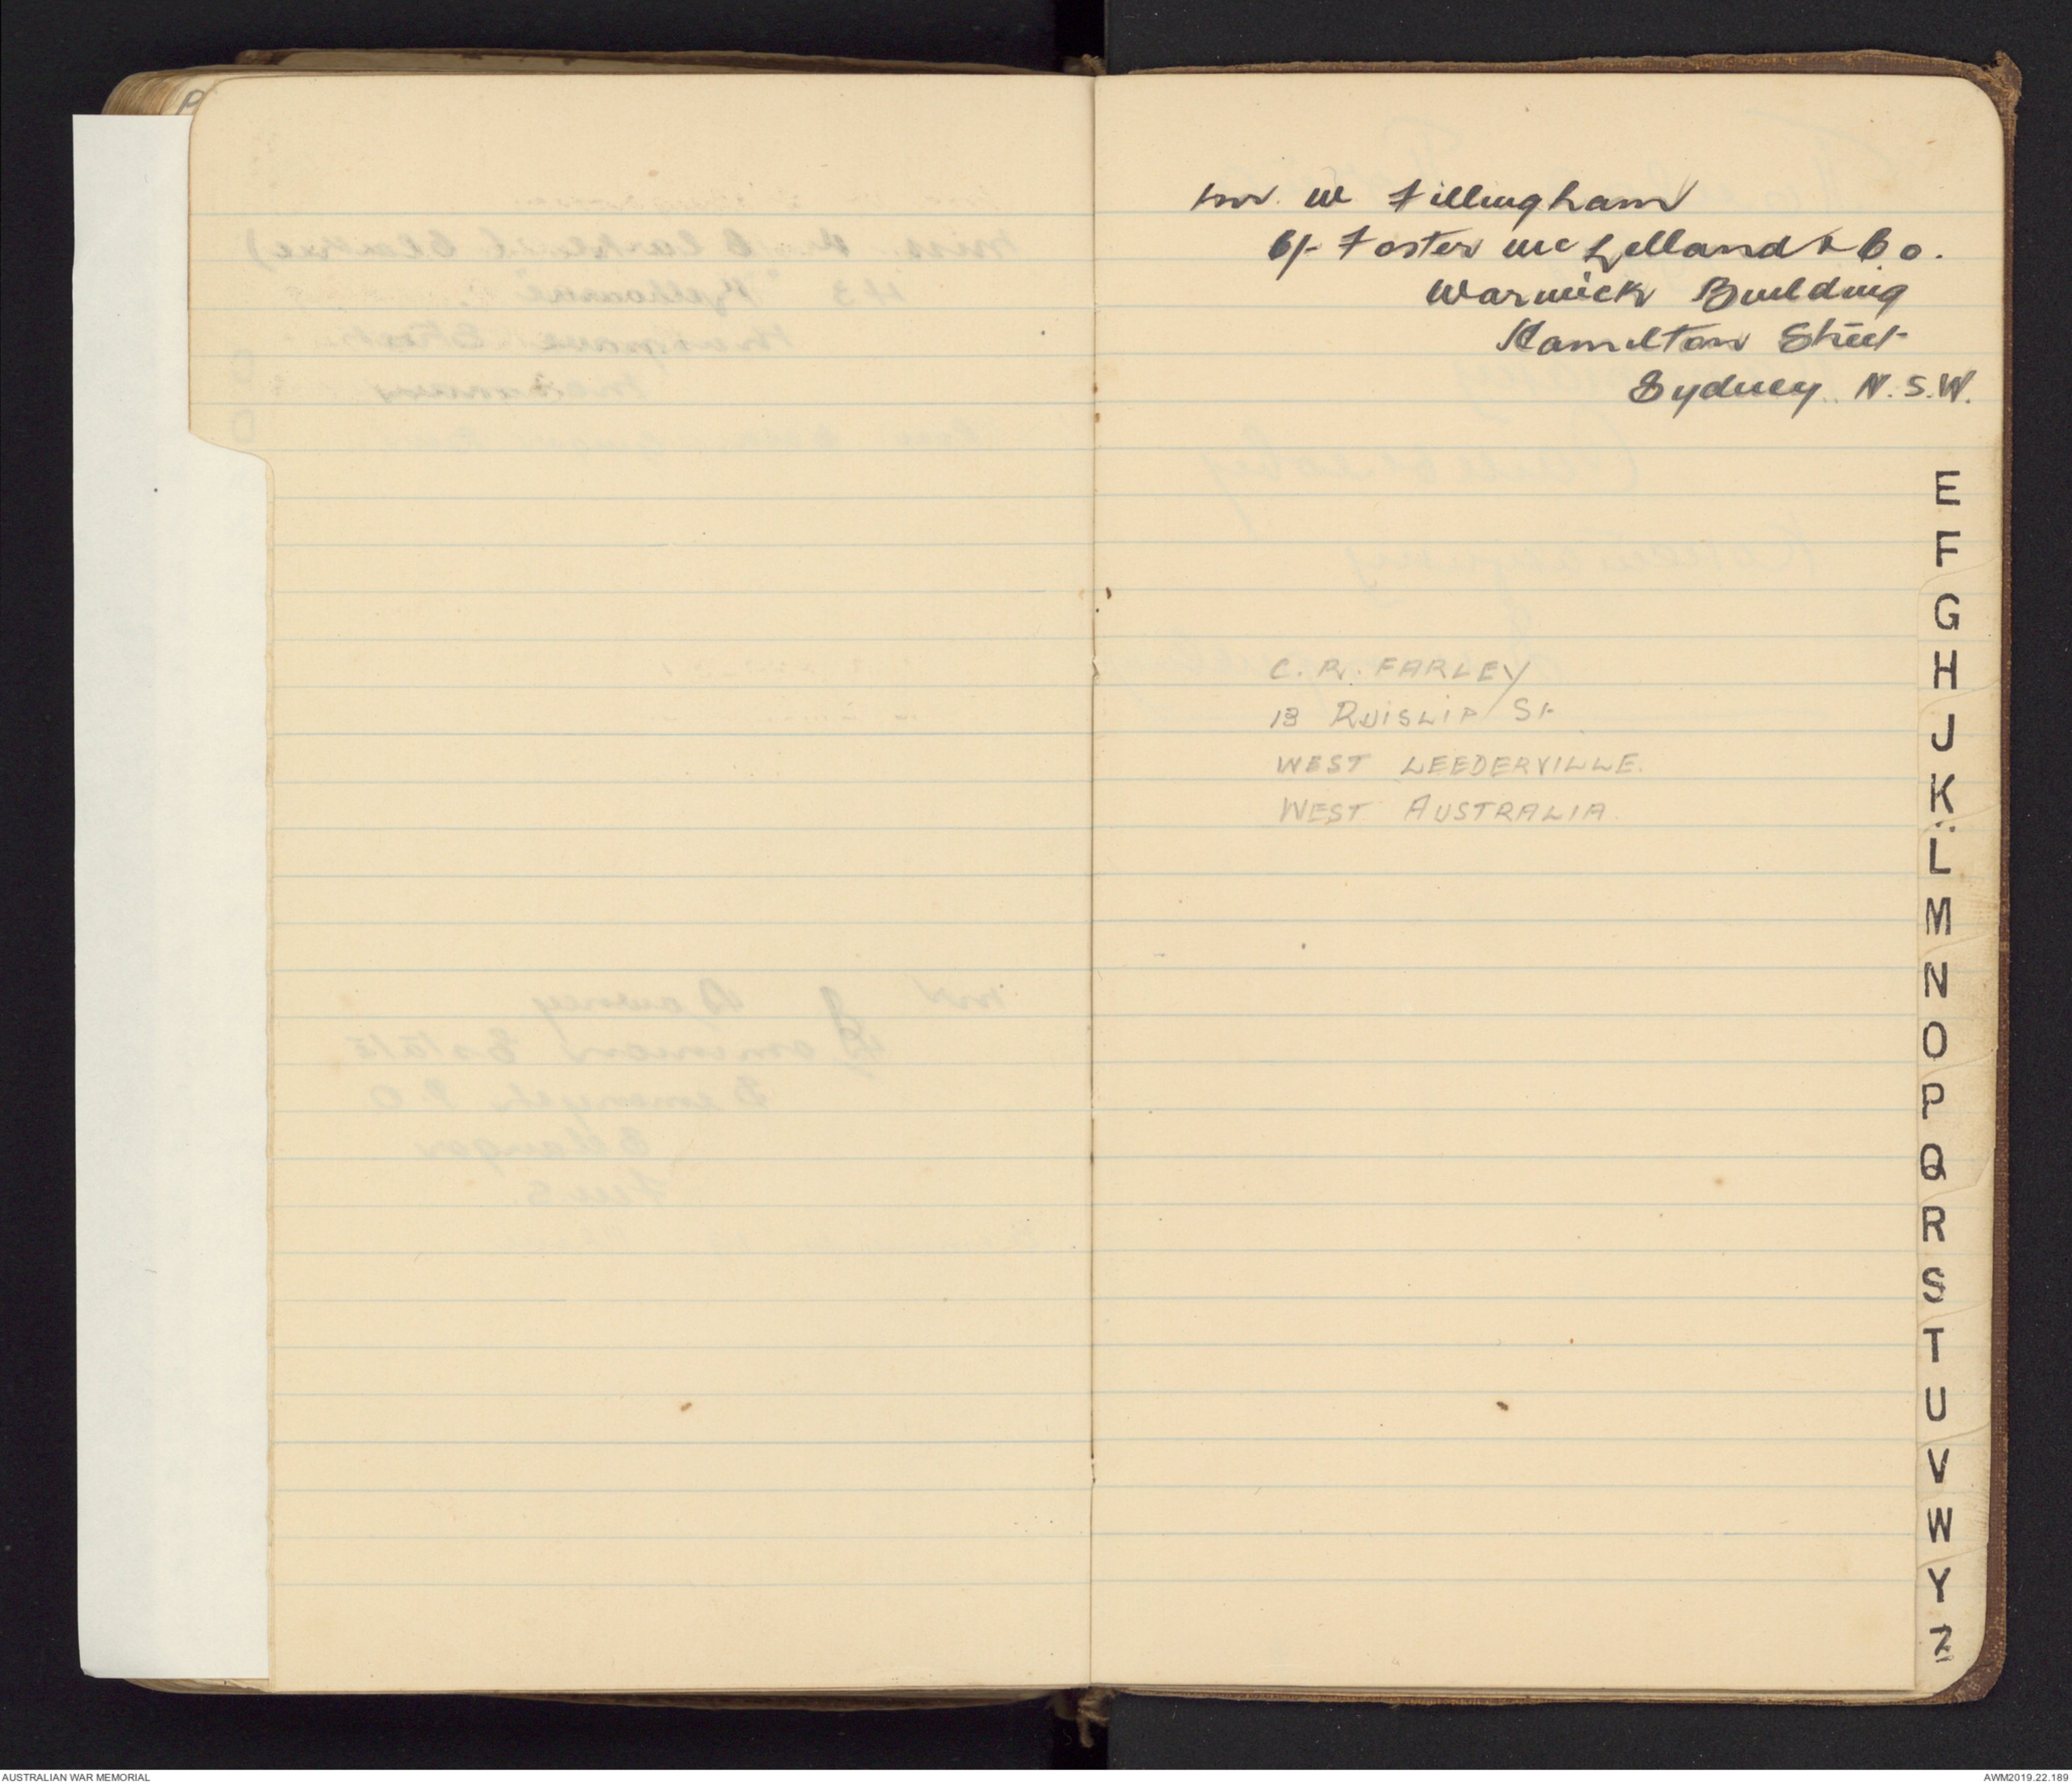 Mr. W Fillingham
C/- Foster McLelland & Co.
Warwick Building
Hamilton Street
Sydney. N.S.W.
C. R. FARLEY
13 RUISLIP St
WEST LEEDERVILLE.
WEST AUSTRALIA
E
F
G
H
J
K
L
M
N
O
P
Q
R
S
T
U
V
W
Y
Z
AUSTRALIAN WAR MEMORIAL
AWM2019.22.189